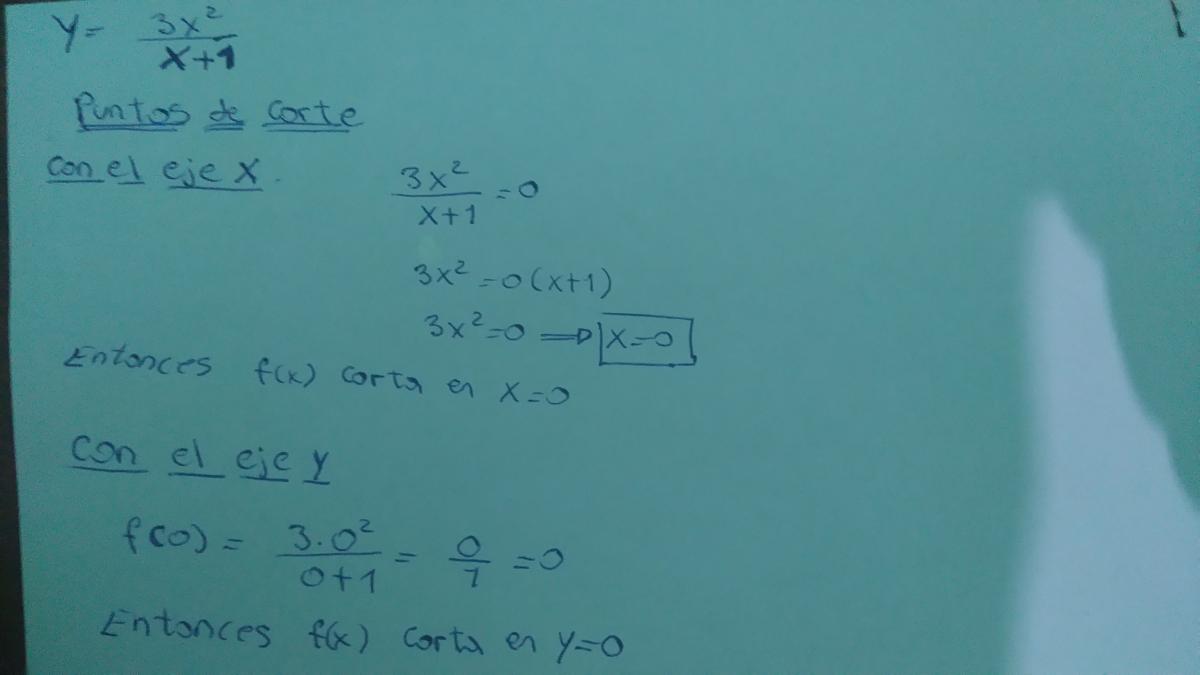 y = 3x²/(x+1)
Puntos de corte
con el eje X.
3x²/(x+1) = 0
3x² = 0(x+1)
3x² = 0 ⇒ x = 0
Entonces f(x) corta en x = 0
Con el eje y
f(0) = (3·0²)/(0+1) = 0/1 = 0
Entonces f(x) corta en y = 0